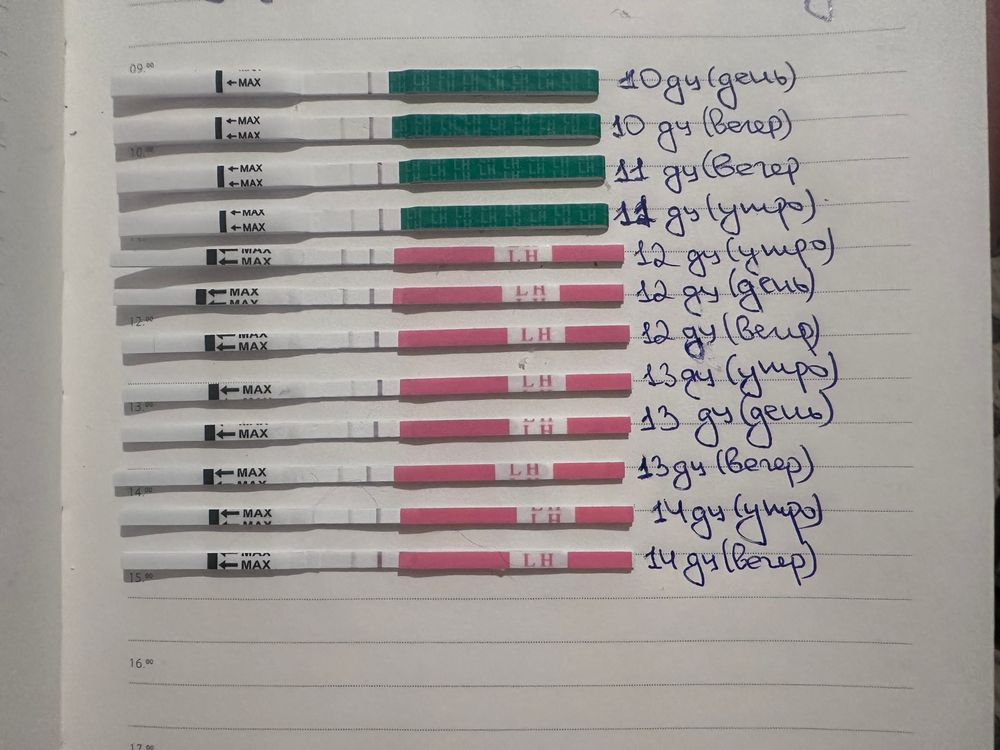 09.⁰⁰
MAX
←MAX
10 дц (день)
←MAX
←MAX
10 дц (вечер)
10.⁰⁰
←MAX
←MAX
11 дц (вечер
←MAX
←MAX
11 дц (утро)
MAX
←MAX
LH
12 дц (утро)
←MAX
MAX
LH
LH
12 дц (день)
12.⁰⁰
MAX
←MAX
LH
12 дц (вечер)
←MAX
LH
13 дц (утро)
13.⁰⁰
←MAX
LH
13 дц (день)
←MAX
LH
13 дц (вечер)
14.⁰⁰
←MAX
LH
14 дц (утро)
MAX
←MAX
LH
14 дц (вечер)
15.⁰⁰
16.⁰⁰
17.⁰⁰